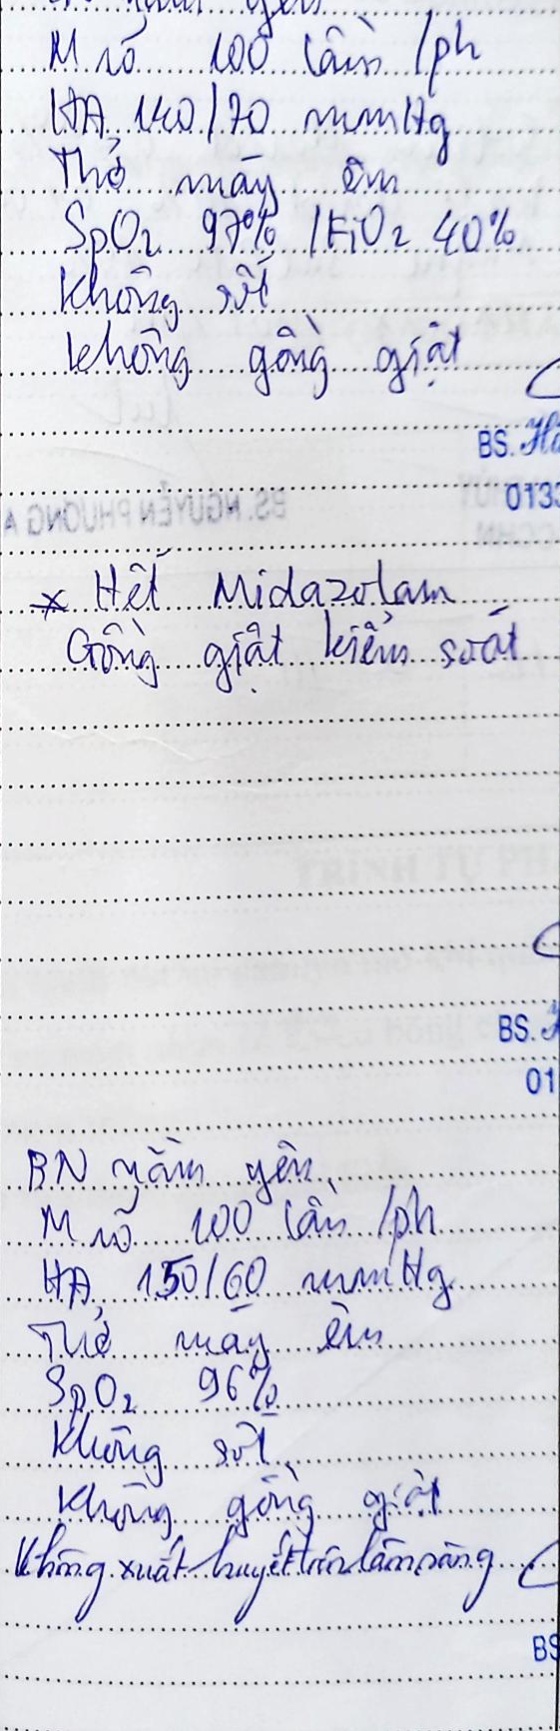 nằm yên
M rõ 100 lần /ph
HA 140/70 mmHg
Thở máy êm
SpO2 97% /FiO2 40%
Không sốt
Không gồng giật
BS.
0133
BS. NGUYỄN PHƯƠNG A
* Hết Midazolam
Gồng giật kiểm soát
TRÌNH TỰ PH
BS.
01
BN nằm yên
M rõ 100 lần /ph
HA 150/60 mmHg
Thở máy êm
SpO2 96%
Không sốt
Không gồng giật
Không xuất huyết trên lâm sàng
BS